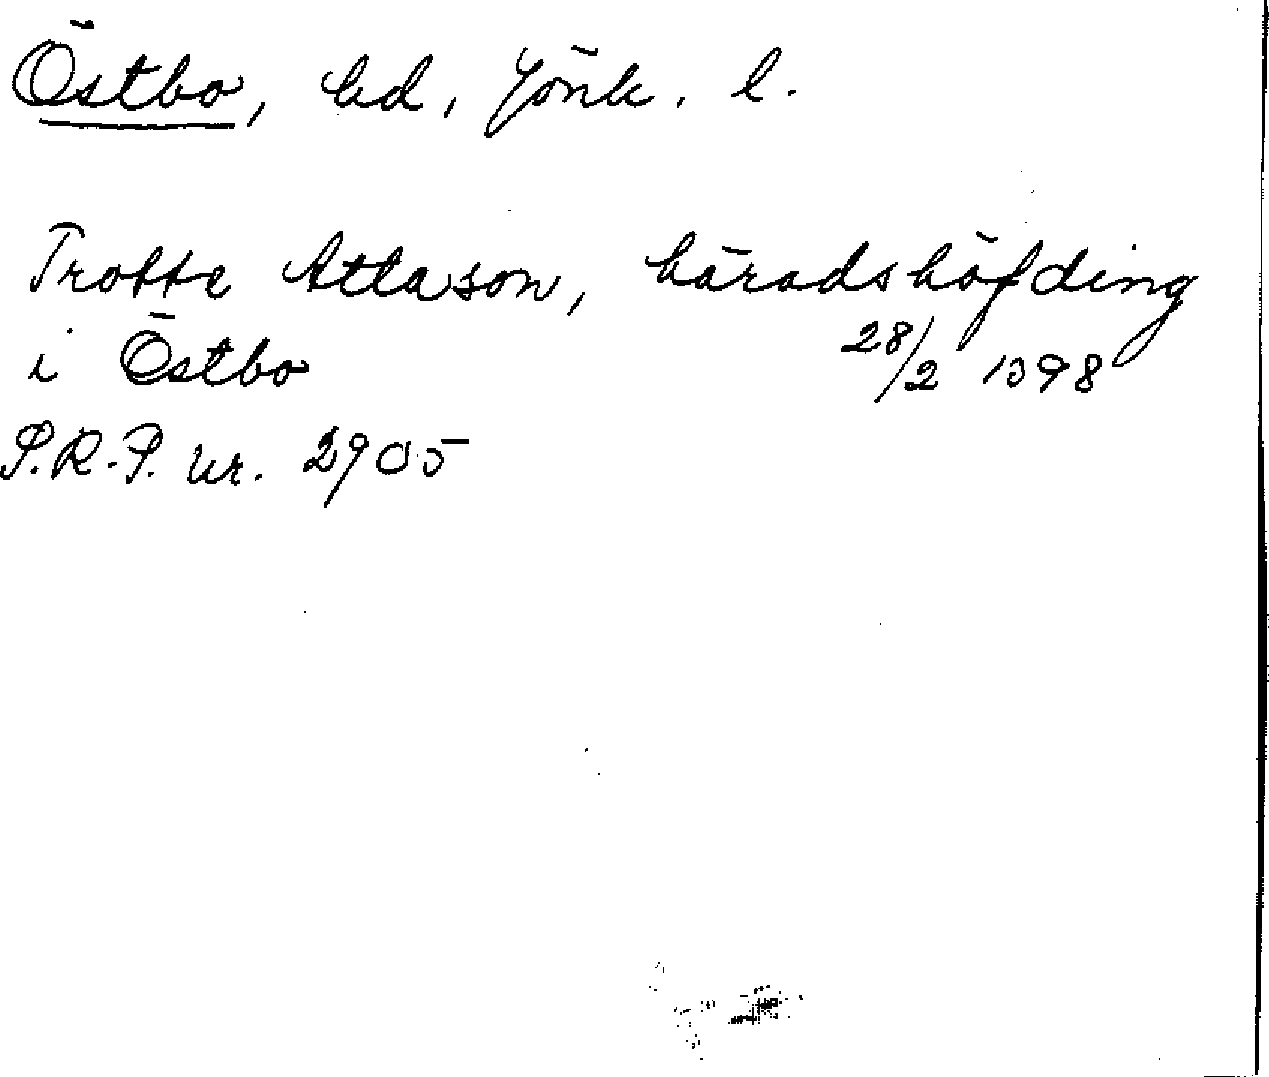 Östbo, hd, Jönk. l.
Trotte Attason, häradshöfding
i Östbo 28/2 1398
S.R.P. nr. 2905